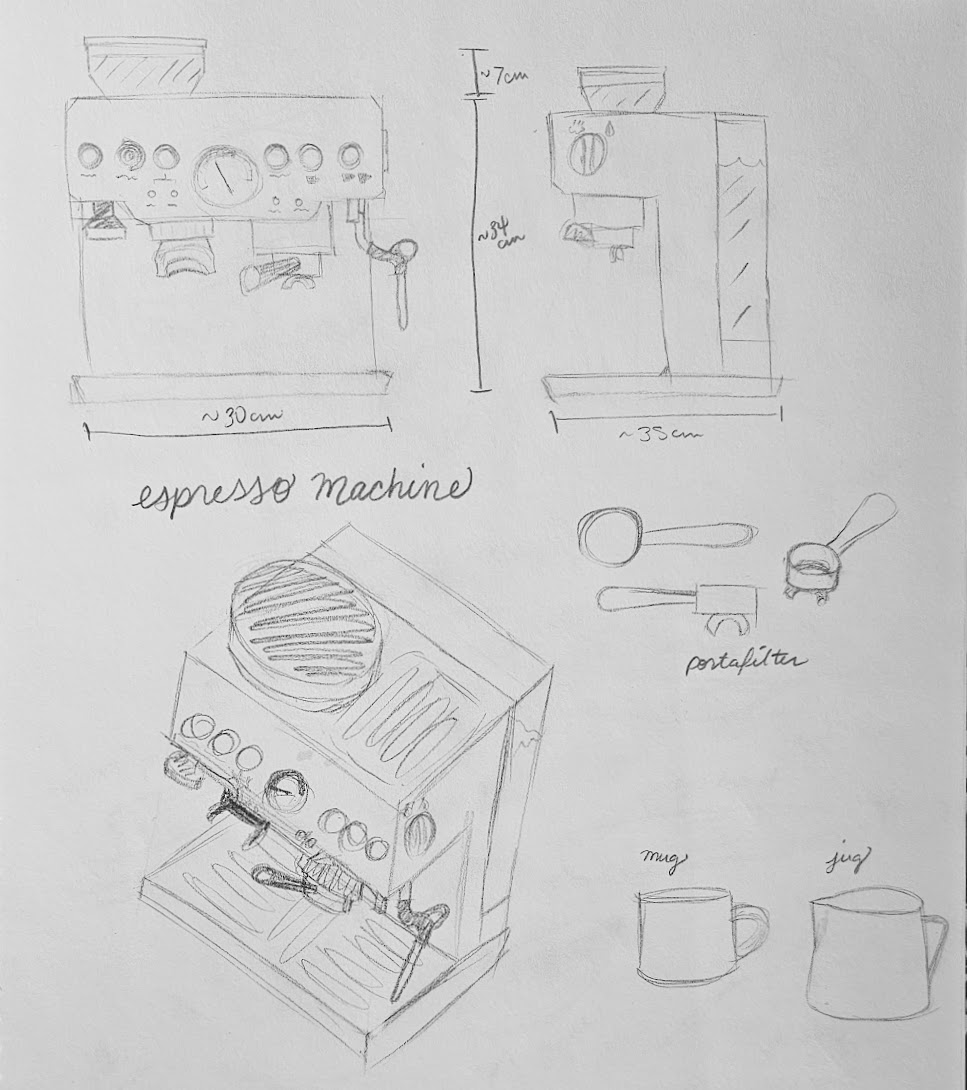 ~7cm
~34
cm
~30cm
~35cm
espresso machine
portafilter
mug
jug